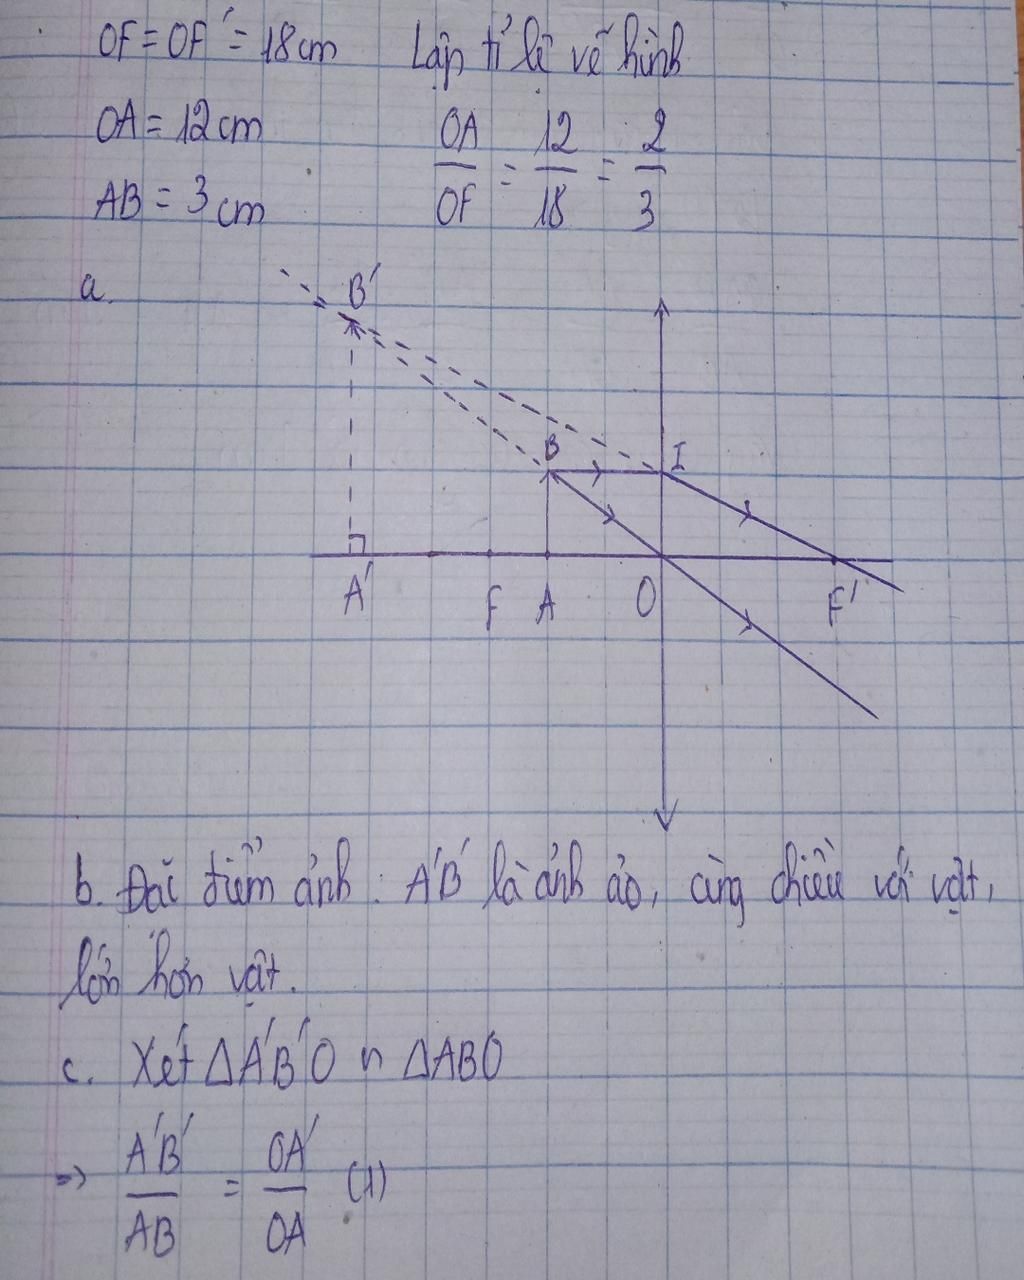 OF = OF' = 18cm Lập tỉ lệ vẽ hình
OA = 12cm OA/OF = 12/18 = 2/3
AB = 3cm
a.
B'
B I
A' F A O F'
b. Đặc điểm ảnh : A'B' là ảnh ảo, cùng chiều với vật,
lớn hơn vật.
c. Xét ΔA'B'O ∽ ΔABO
=> A'B'/AB = OA'/OA (1)